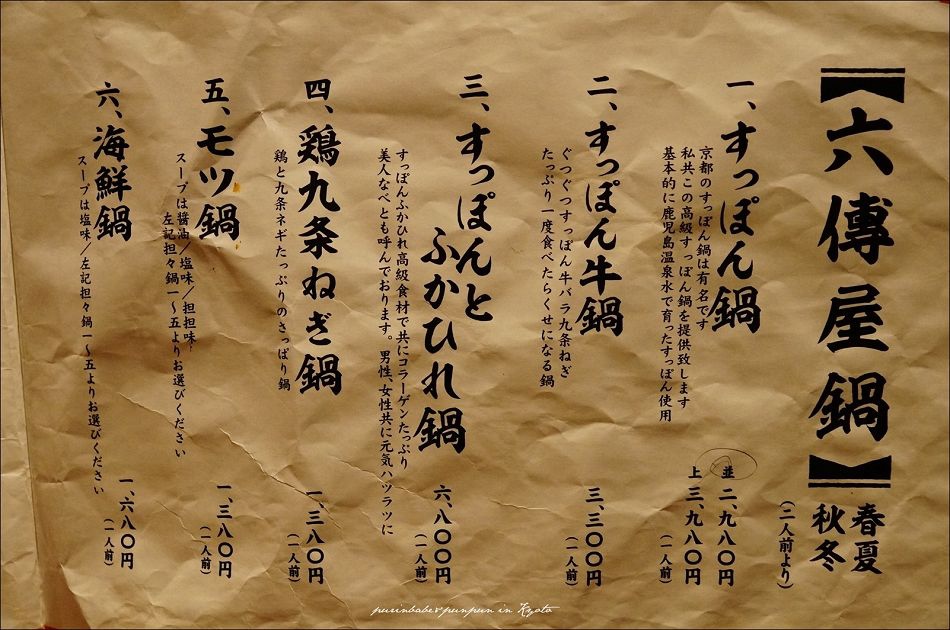 【六傳屋鍋】
春夏
秋冬
（二人前より）
一、すっぽん鍋
京都のすっぽん鍋は有名です
私共この高級すっぽん鍋を提供致します
基本的に鹿児島温泉水で育ったすっぽん使用
並 二、九八〇円
上 三、九八〇円
（一人前）
二、すっぽん牛鍋
ぐつぐつすっぽん牛バラ九条ねぎ
たっぷり一度食べたらくせになる鍋
三、三〇〇円
（一人前）
三、すっぽんと
ふかひれ鍋
すっぽんふかひれ高級食材で共にコラーゲンたっぷり
美人なべとも呼んでおります。男性、女性共に元気ハツラツに
六、八〇〇円
（一人前）
四、鶏九条ねぎ鍋
鶏と九条ネギたっぷりのさっぱり鍋
一、三八〇円
（一人前）
五、モツ鍋
スープは醤油/塩味/担担味
左記担々鍋一〜五よりお選びください
一、三八〇円
（一人前）
六、海鮮鍋
スープは塩味/左記担々鍋一〜五よりお選びください
一、六八〇円
（一人前）
purinbabe&punpun in Kyoto